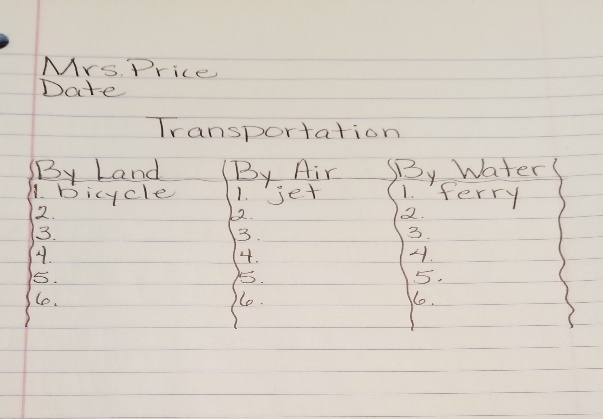 Mrs. Price
Date
Transportation
By Land By Air By Water
1. bicycle 1. jet 1. ferry
2. 2. 2.
3. 3. 3.
4. 4. 4.
5. 5. 5.
6. 6. 6.